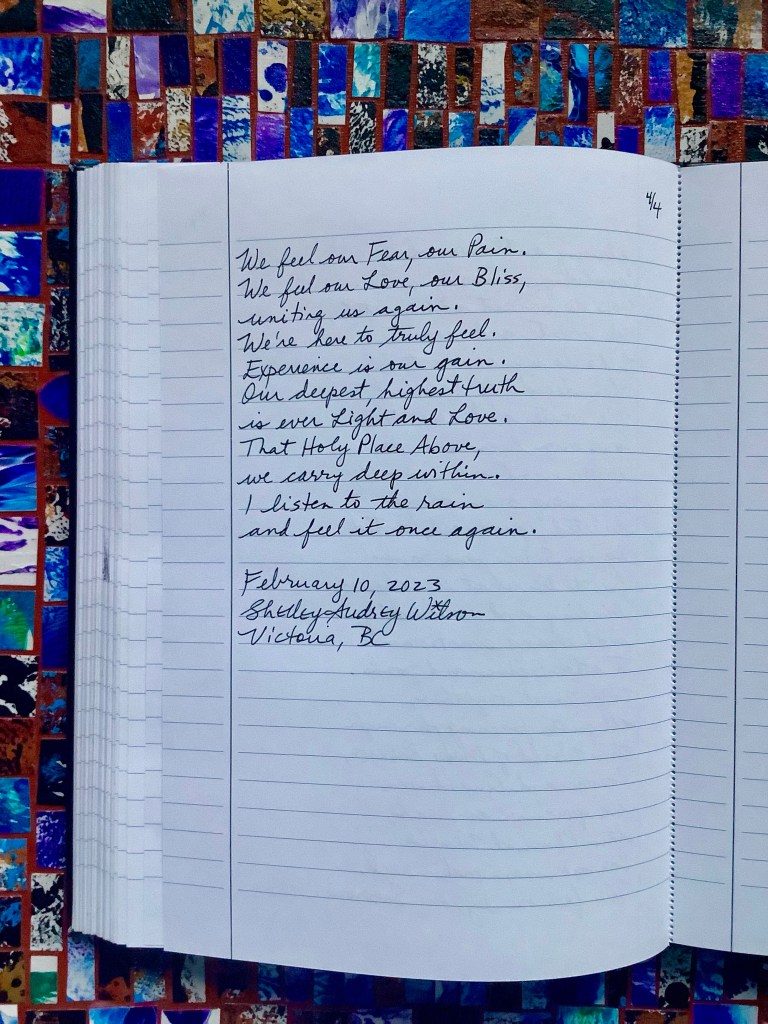 4/4
We feel our Fear, our Pain.
We feel our Love, our Bliss,
uniting us again.
We're here to truly feel.
Experience is our gain.
Our deepest, highest truth
is ever Light and Love.
That Holy Place Above,
we carry deep within.
I listen to the rain
and feel it once again.
February 10, 2023
Shelley Audrey Wilson
Victoria, BC